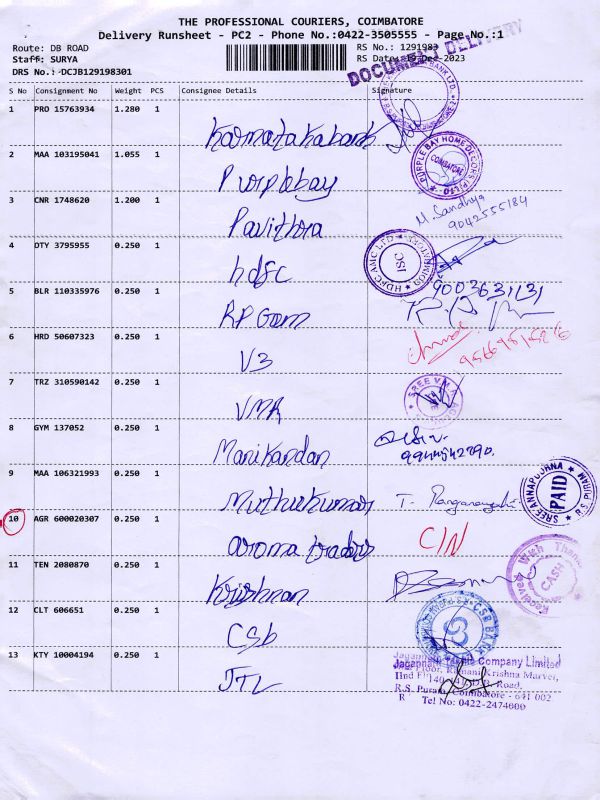 THE PROFESSIONAL COURIERS, COIMBATORE
Delivery Runsheet - PC2 - Phone No.:0422-3505555 - Page No.:1
Route: DB ROAD
Staff: SURYA
DRS No.: DCJB129198301
RS No.: 1291983
RS Date: Dec-2023
DOCUMENT DELIVERY
S No Consignment No Weight PCS Consignee Details Signature
1 PRO 15763934 1.280 1
Karnataka bank
2 MAA 103195041 1.055 1
Purplebay
PURPLE BAY HOME DECORS (P) LTD
COIMBATORE
3 CNR 1748620 1.200 1
Pavithra
M. Sandhya
9042555184
4 DTY 3795955 0.250 1
hdfc
HDFC AMC LTD
ISC
COIMBATORE
5 BLR 110335976 0.250 1
RP Gom
9003631131
6 HRD 50607323 0.250 1
V3
7 TRZ 310590142 0.250 1
VMR
SREE V.M.
8 GYM 137052 0.250 1
Manikandan
9944542790.
9 MAA 106321993 0.250 1
Muthukumar
T. Ranganayaki
SREE ANNAPOORNA
PAID
10 AGR 600020307 0.250 1
aroma traders
C/N
11 TEN 2080870 0.250 1
Krishnan
Received With Thanks
CASH
12 CLT 606651 0.250 1
CSb
CSB BANK
13 KTY 10004194 0.250 1
JTL
Jagannath Textile Company Limited
IInd Floor, Krishna Marvel,
D.B. Road,
R.S. Puram, Coimbatore - 641 002
Tel No: 0422-2474000